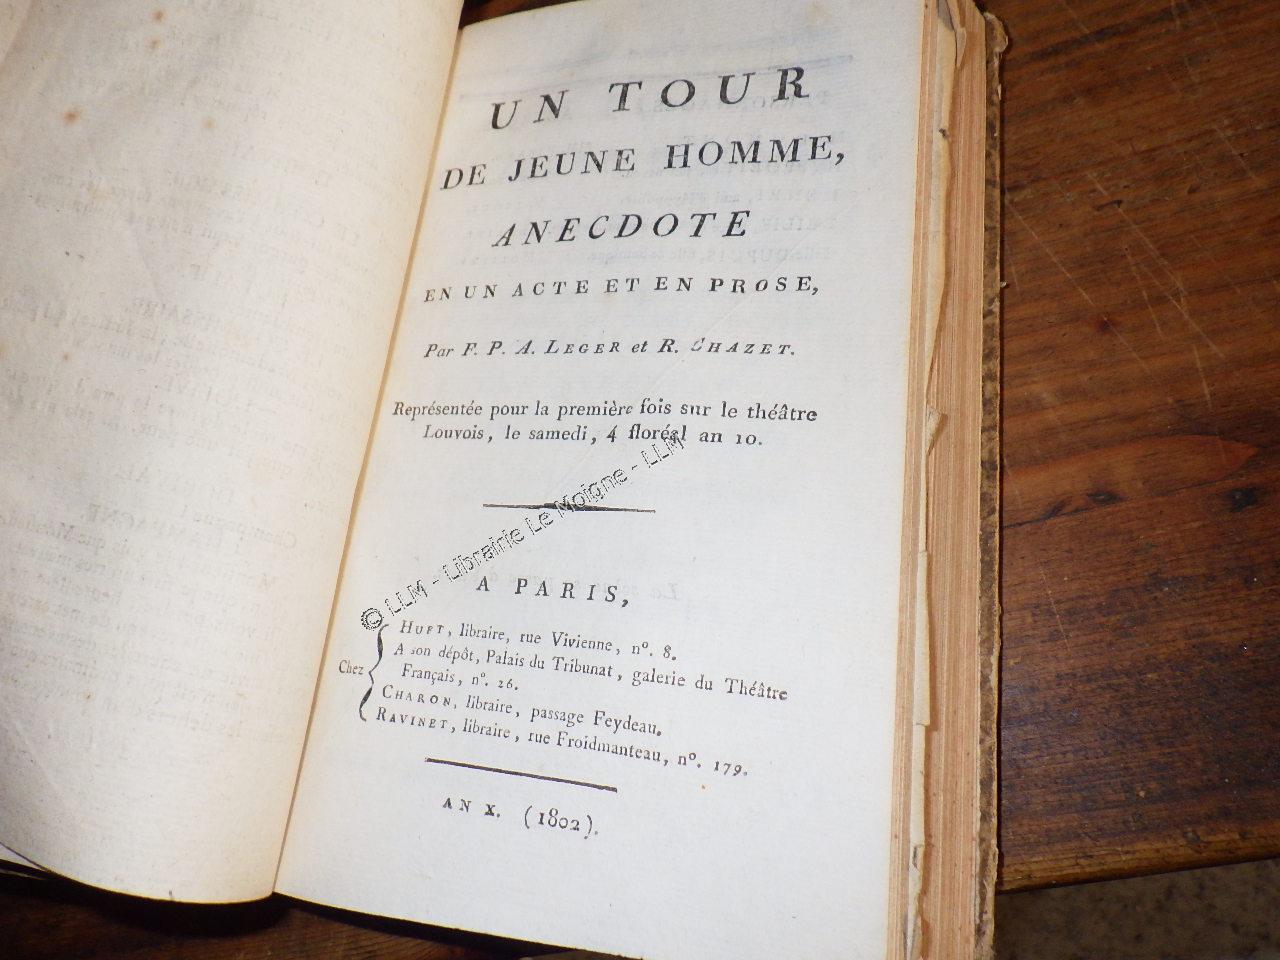 UN TOUR
DE JEUNE HOMME,
ANECDOTE
EN UN ACTE ET EN PROSE,
Par F. P. A. LEGER et R. CHAZET.
Représentée pour la première fois sur le théâtre
Louvois, le samedi, 4 floréal an 10.
© LLM - Librairie Le Moigne - LLM
A PARIS,
Chez
HUET, libraire, rue Vivienne, nº. 8.
A son dépôt, Palais du Tribunat, galerie du Théâtre
Français, nº. 26.
CHARON, libraire, passage Feydeau.
RAVINET, libraire, rue Froidmanteau, nº. 179.
AN X. (1802).